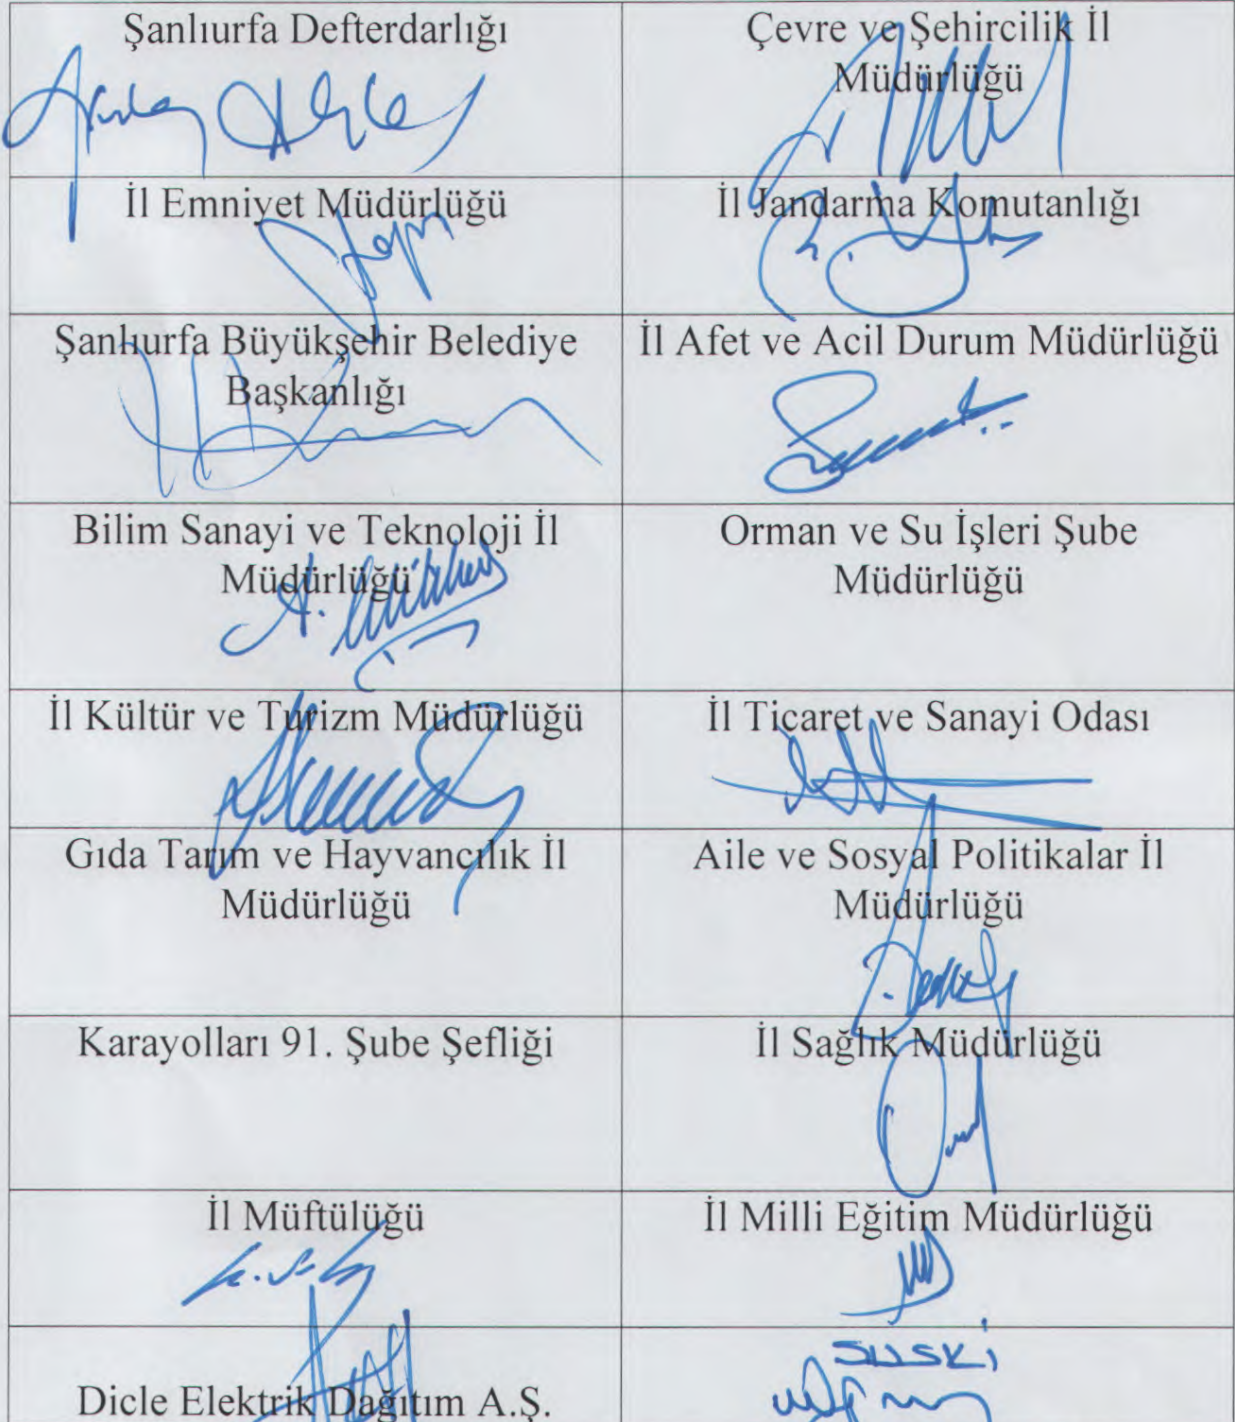 Şanlıurfa Defterdarlığı
Çevre ve Şehircilik İl
Müdürlüğü
İl Emniyet Müdürlüğü
İl Jandarma Komutanlığı
Şanlıurfa Büyükşehir Belediye
Başkanlığı
İl Afet ve Acil Durum Müdürlüğü
Bilim Sanayi ve Teknoloji İl
Müdürlüğü
Orman ve Su İşleri Şube
Müdürlüğü
İl Kültür ve Turizm Müdürlüğü
İl Ticaret ve Sanayi Odası
Gıda Tarım ve Hayvancılık İl
Müdürlüğü
Aile ve Sosyal Politikalar İl
Müdürlüğü
Karayolları 91. Şube Şefliği
İl Sağlık Müdürlüğü
İl Müftülüğü
İl Milli Eğitim Müdürlüğü
Dicle Elektrik Dağıtım A.Ş.
ŞUSKİ